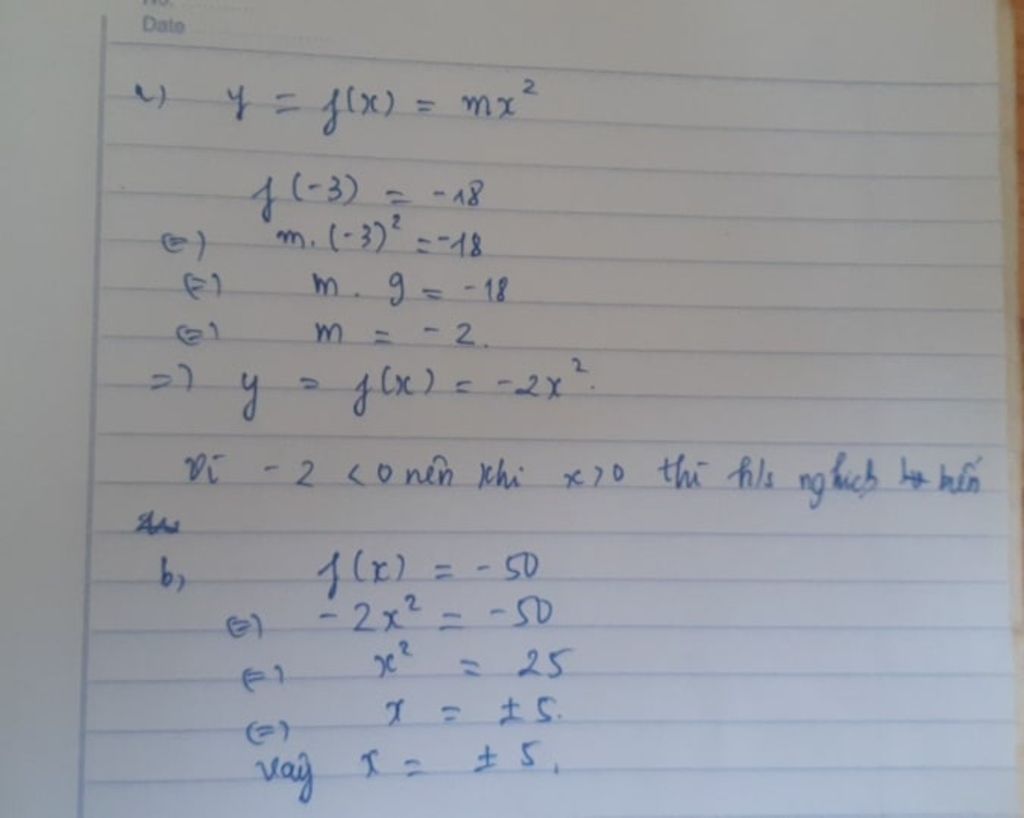 No.
Date
a) y = f(x) = mx²
f(-3) = -18
<=> m. (-3)² = -18
<=> m. 9 = -18
<=> m = -2.
=> y = f(x) = -2x².
Vì -2 < 0 nên khi x > 0 thì h/s nghịch biến
b, f(x) = -50
<=> -2x² = -50
<=> x² = 25
<=> x = ±5.
Vậy x = ±5.